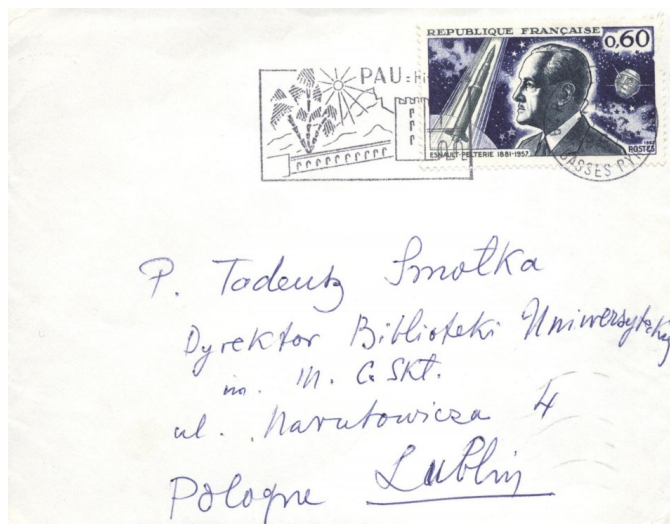 REPUBLIQUE FRANÇAISE
0,60
PAU
ESNAULT-PELTERIE 1881-1957
POSTES
BASSES PY
P. Tadeusz Smołka
Dyrektor Biblioteki Uniwersytetu
im. M. C. Skł.
ul. Narutowicza 4
Pologne Lublin